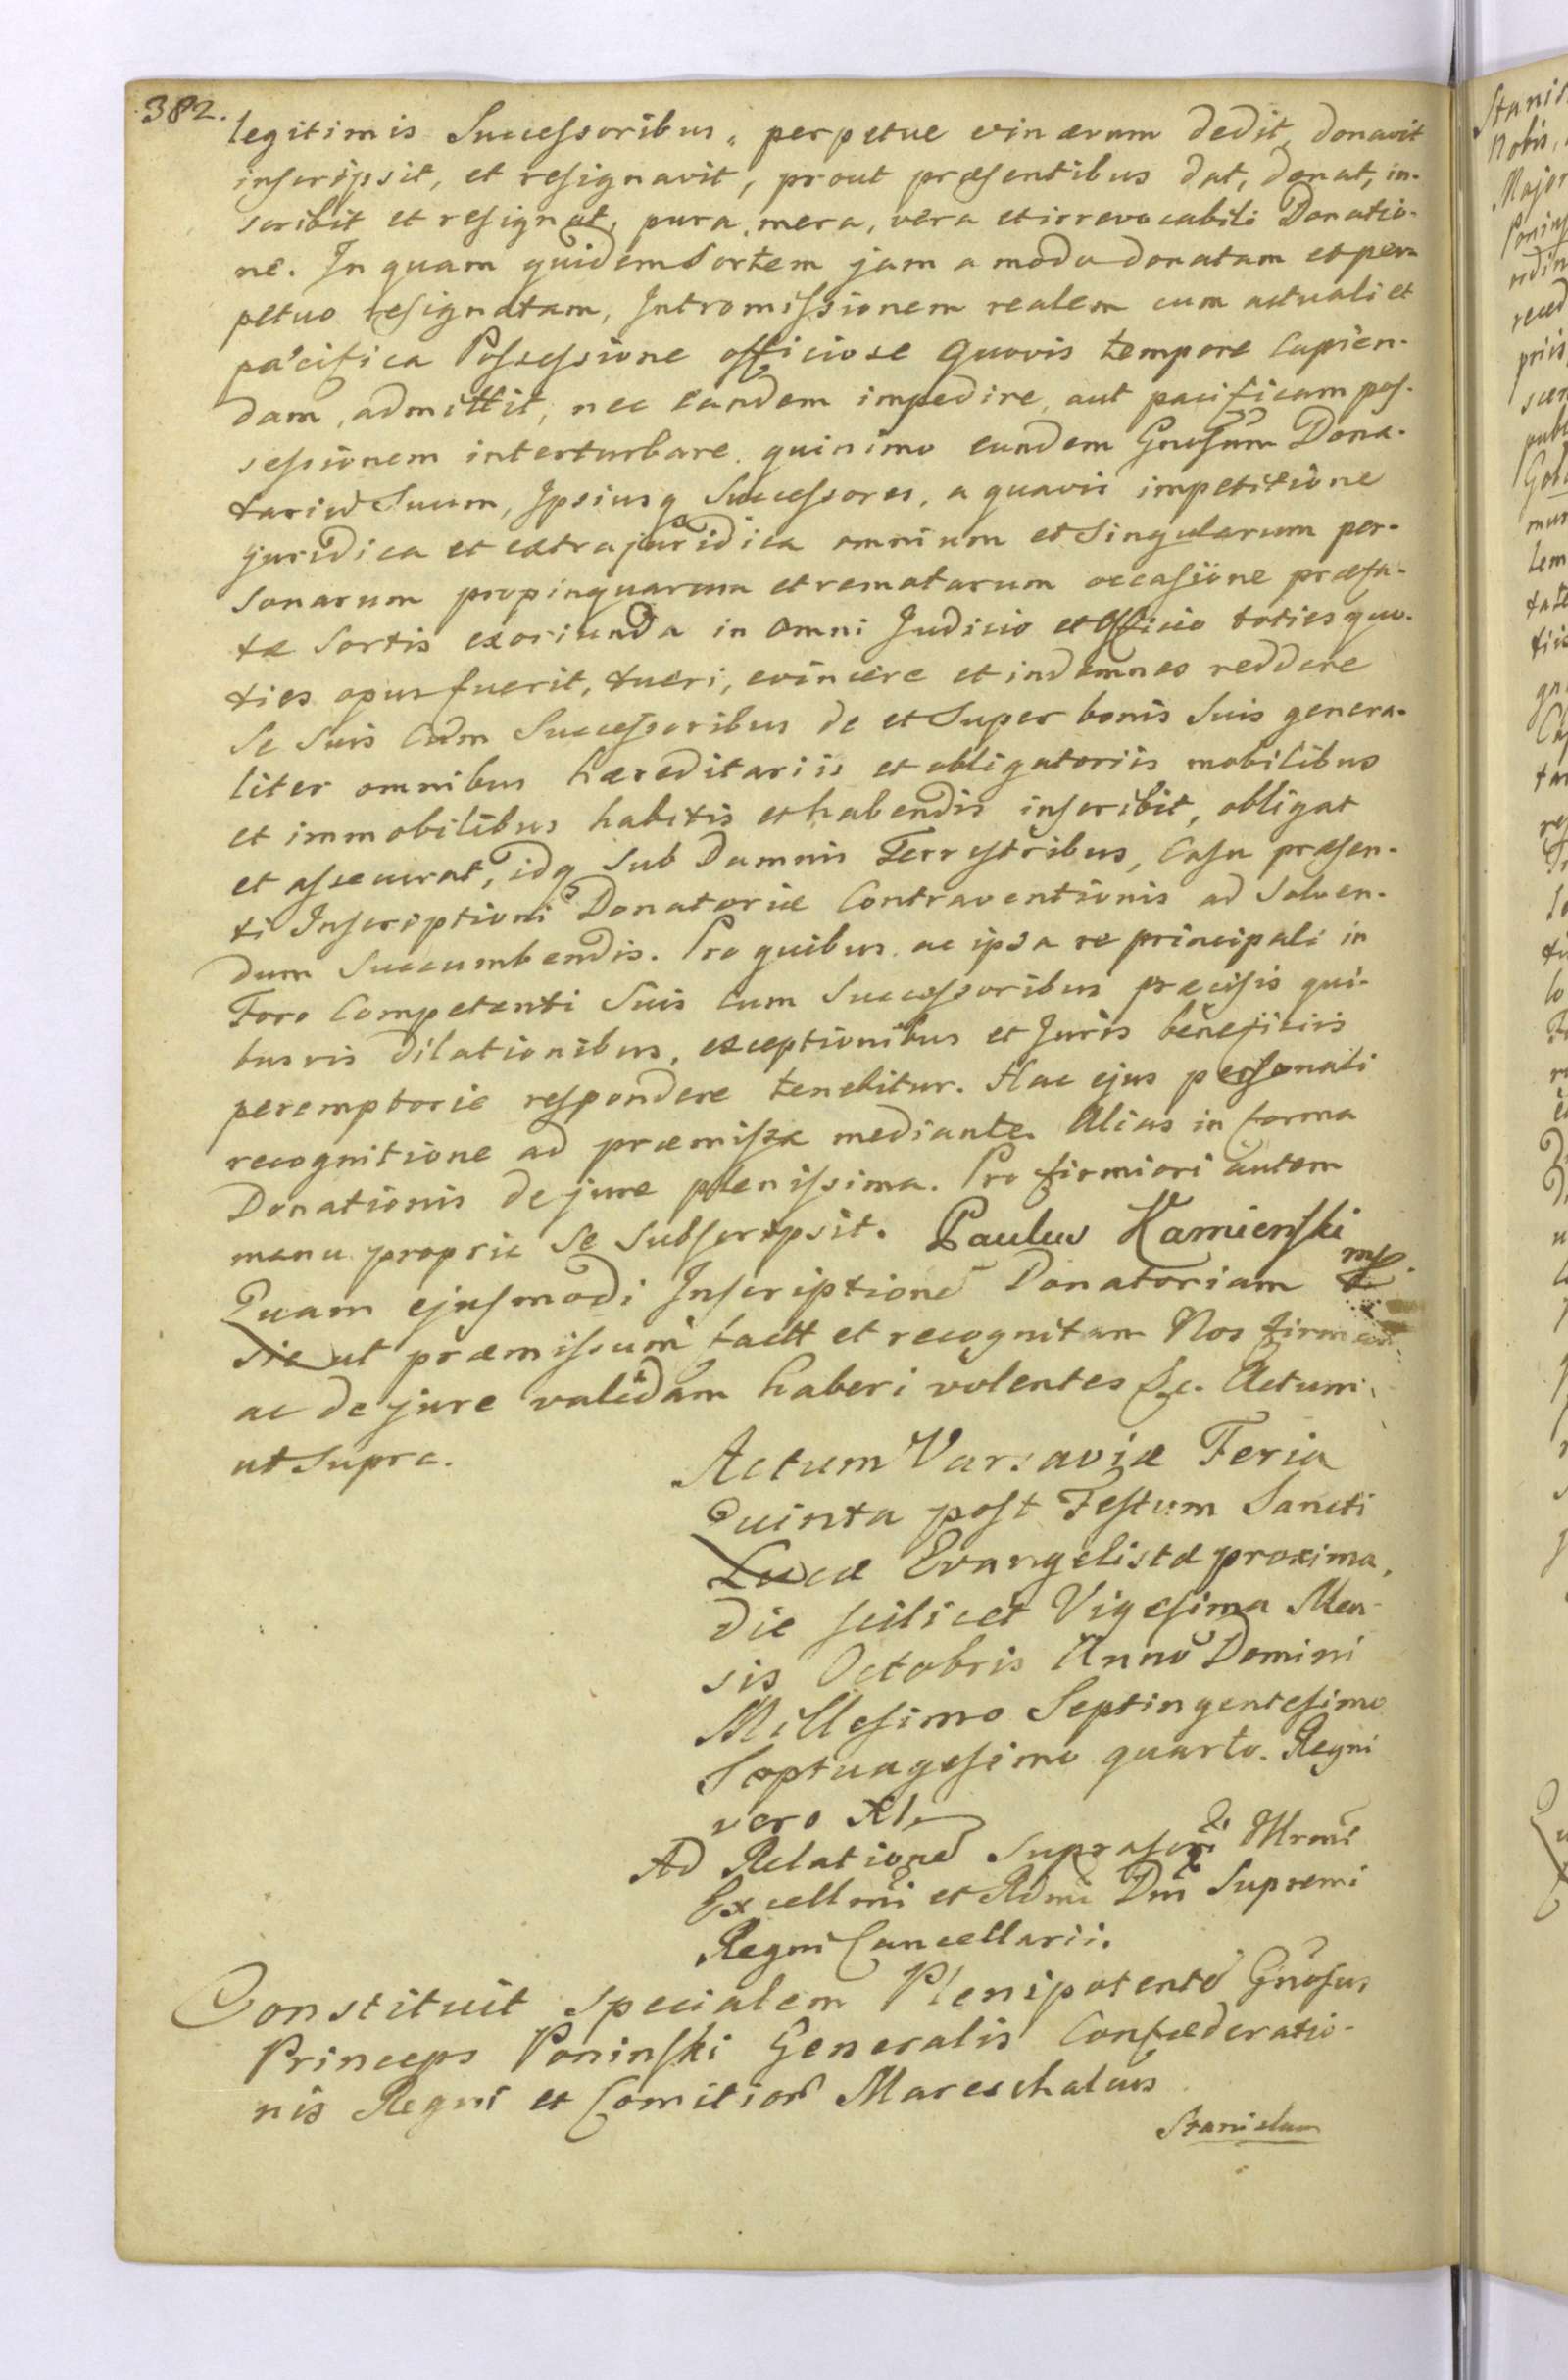 382.
legitimis Successoribus, perpetue et in ævum dedit, donavit
inscripsit, et resignavit, prout præsentibus dat, donat, in-
scribit et resignat, pura, mera, vera et irrevocabili Donatio-
ne. In quam quidem Sortem jam a modo donatam et per-
petuo resignatam, Intromissionem realem cum actuali et
pacifica Possessione officiose quovis tempore Capien-
dam, admittit, nec eandem impedire, aut pacificam pos-
sessionem interturbare, quinimo eundem Gnosum Dona-
tariū Suum, Ipsiusq Successores, a quavis impetitione
juridica et extrajuridica omnium et Singularum per-
sonarum propinquarum et remotarum occasione præfa-
tæ Sortis exoriunda in omni Judicio et Officio toties quo-
ties opus fuerit, tueri, evincere et indemnes reddere
Se Suis Cum Successoribus de et Super bonis Suis genera-
liter omnibus hæreditariis et obligatoriis mobilibus
et immobilibus habitis et habendis inscribit, obligat
et assecurat, idq Sub Damnis Terrestribus, Casu præsen-
ti Inscriptioni Donatoriæ Contraventionis ad Solven-
dum Succumbendis. Pro quibus ac ipsa re principali in
Foro Competenti Suis cum Successoribus præcisis qui-
busvis dilationibus, exceptionibus et Juris beneficiis
peremptorie respondere tenebitur. Hac ejus personali
recognitione ad præmissa mediante. Alias in forma
Donationis de jure plenissima. Pro firmiori autem
manu propria Se Subscripsit. Paulus Kamienski
mp
Quam ejusmodi Inscriptionē Donatoriam
Sic ut præmissum factt et recognitam Nos firmam
ac de jure validam haberi volentes &c. Actum
ut Supra.
Actum Varsaviæ Feria
Quinta post Festum Sancti
Lucæ Evangelistæ proxima,
die scilicet Vigesima Men-
sis Octobris Anno Domini
Millesimo Septingentesimo
Septuagesimo quarto. Regni
vero XI
Ad Relationē Suprascri Illrmi
Excellmi et Rdmi Dni Supremi
Regni Cancellarii.
Constituit Specialem Plenipotentē Gnosus
Princeps Poninski Generalis Confæderatio-
nis Regni et Comitior Mareschalcus
Stanislaum